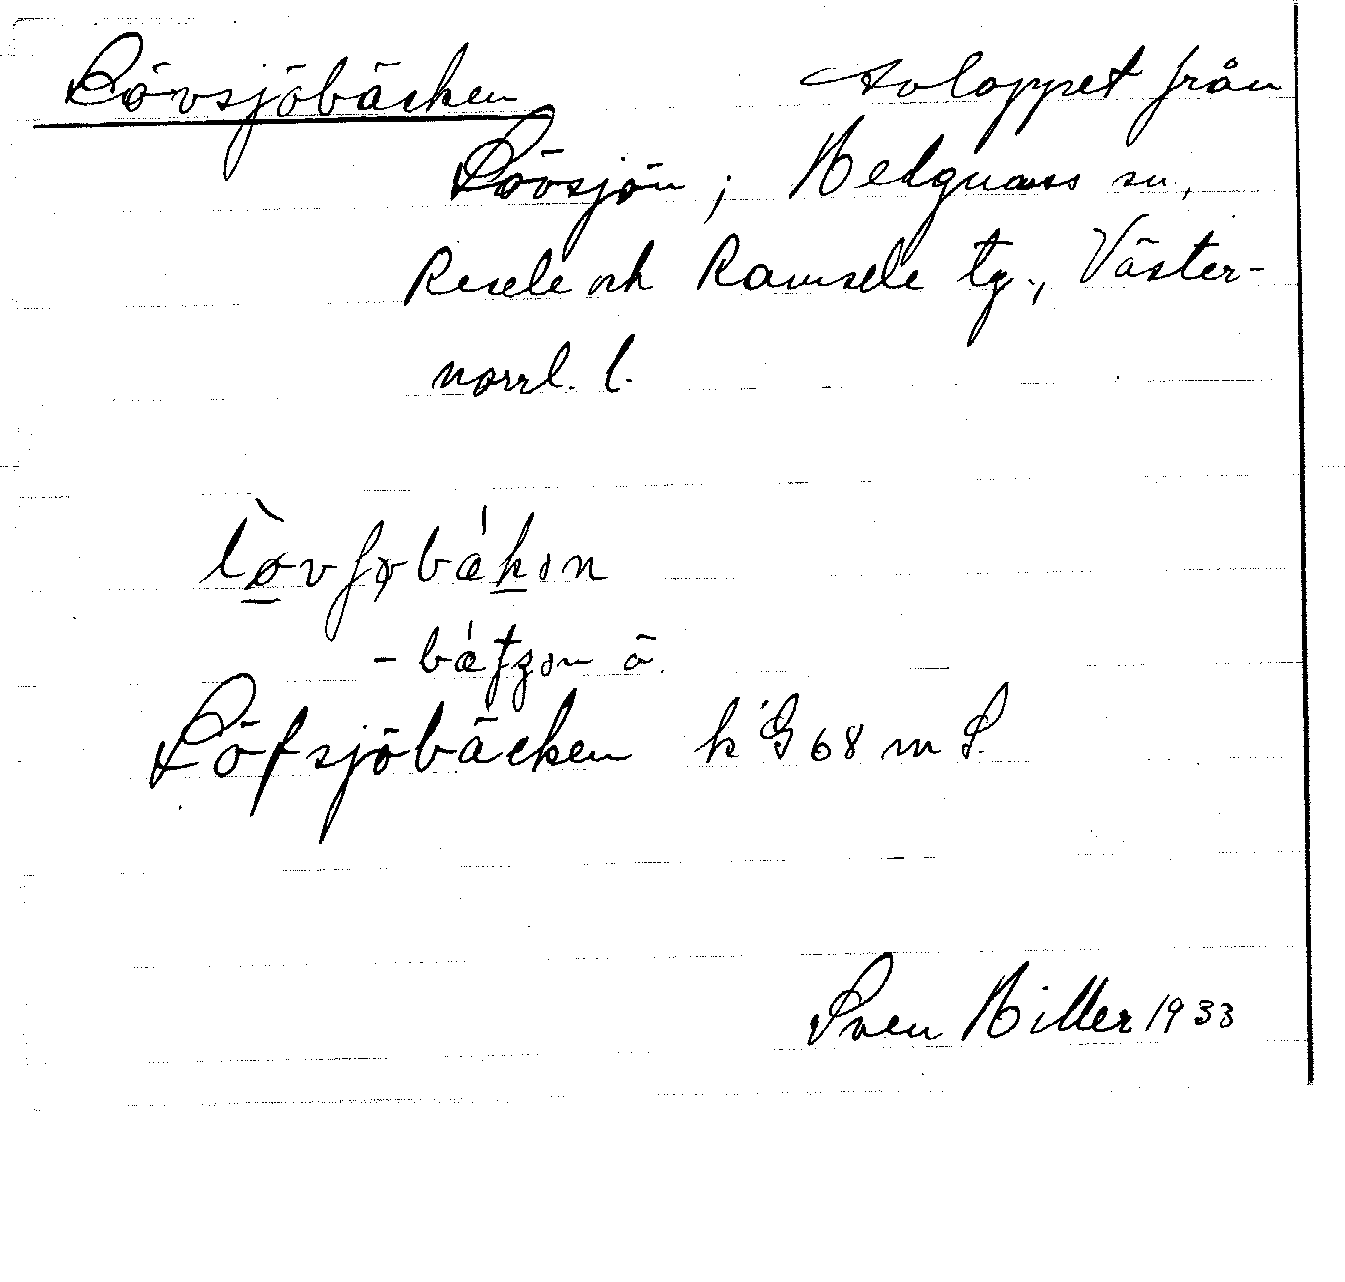 Lövsjöbäcken Avloppet från
Lövsjön; Helgums sn,
Resele och Ramsele tg., Väster-
norrl. l.
lø̀vʃøbákən
-bátʃən ä.
Löfsjöbäcken k G 68 m S.
Sven Hiller 1933